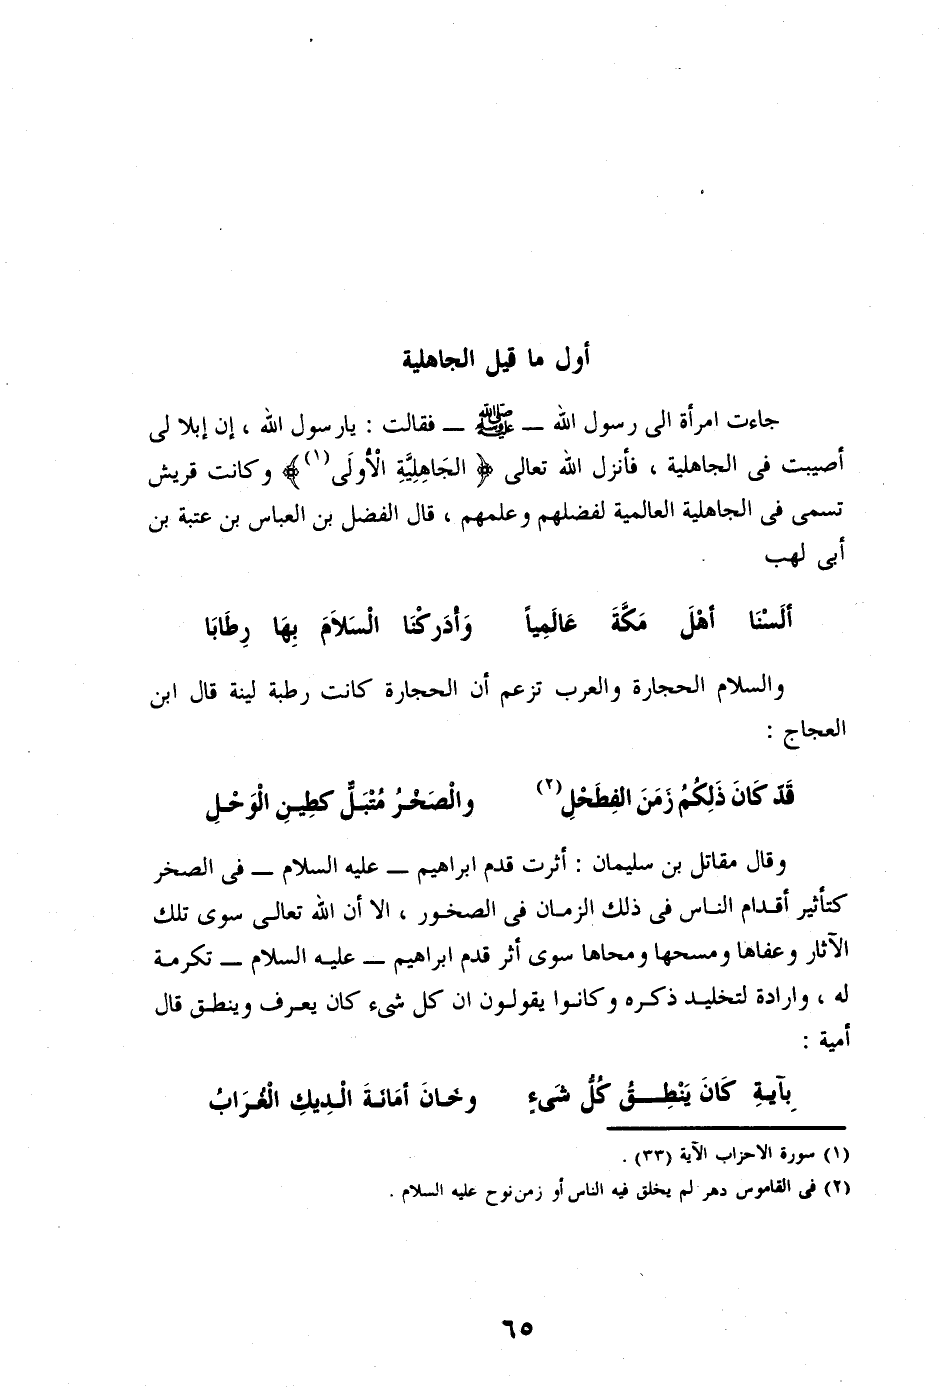 أول ما قيل الجاهلية
جاءت امرأة الى رسول الله ــ ﷺ ــ فقالت : يارسول الله ، إن إبلا لى
أصيبت فى الجاهلية ، فأنزل الله تعالى ﴿ الجَاهِلِيَّةِ الْأُولَى(١)﴾ وكانت قريش
تسمى فى الجاهلية العالمية لفضلهم وعلمهم ، قال الفضل بن العباس بن عتبة بن
أبى لهب
أَلَسْنَا أَهْلَ مَكَّةَ عَالَمِياً وَأَدَركْنَا الْسَلاَمَ بِهَا رِطَابَا
والسلام الحجارة والعرب تزعم أن الحجارة كانت رطبة لينة قال ابن
العجاج :
قَدّ كَانَ ذَلِكُمُ زَمَنَ الفِطَحْلِ(٢) والْصَخْرُ مُتْبَلٌّ كطِينِ الْوَحْلِ
وقال مقاتل بن سليمان : أثرت قدم ابراهيم ــ عليه السلام ــ فى الصخر
كتأثير أقدام الناس فى ذلك الزمان فى الصخور ، الا أن الله تعالى سوى تلك
الآثار وعفاها ومسحها ومحاها سوى أثر قدم ابراهيم ــ عليه السلام ــ تكرمة
له ، وارادة لتخليد ذكره وكانوا يقولون ان كل شىء كان يعرف وينطق قال
أمية :
بِآيةِ كَانَ يَنْطِقُ كُلُّ شَىءٍ وخَانَ أمَانَةَ الْدِيكِ الْغُرَابُ
(١) سورة الاحزاب الآية (٣٣) .
(٢) فى القاموس دهر لم يخلق فيه الناس أو زمن نوح عليه السلام .
٦٥